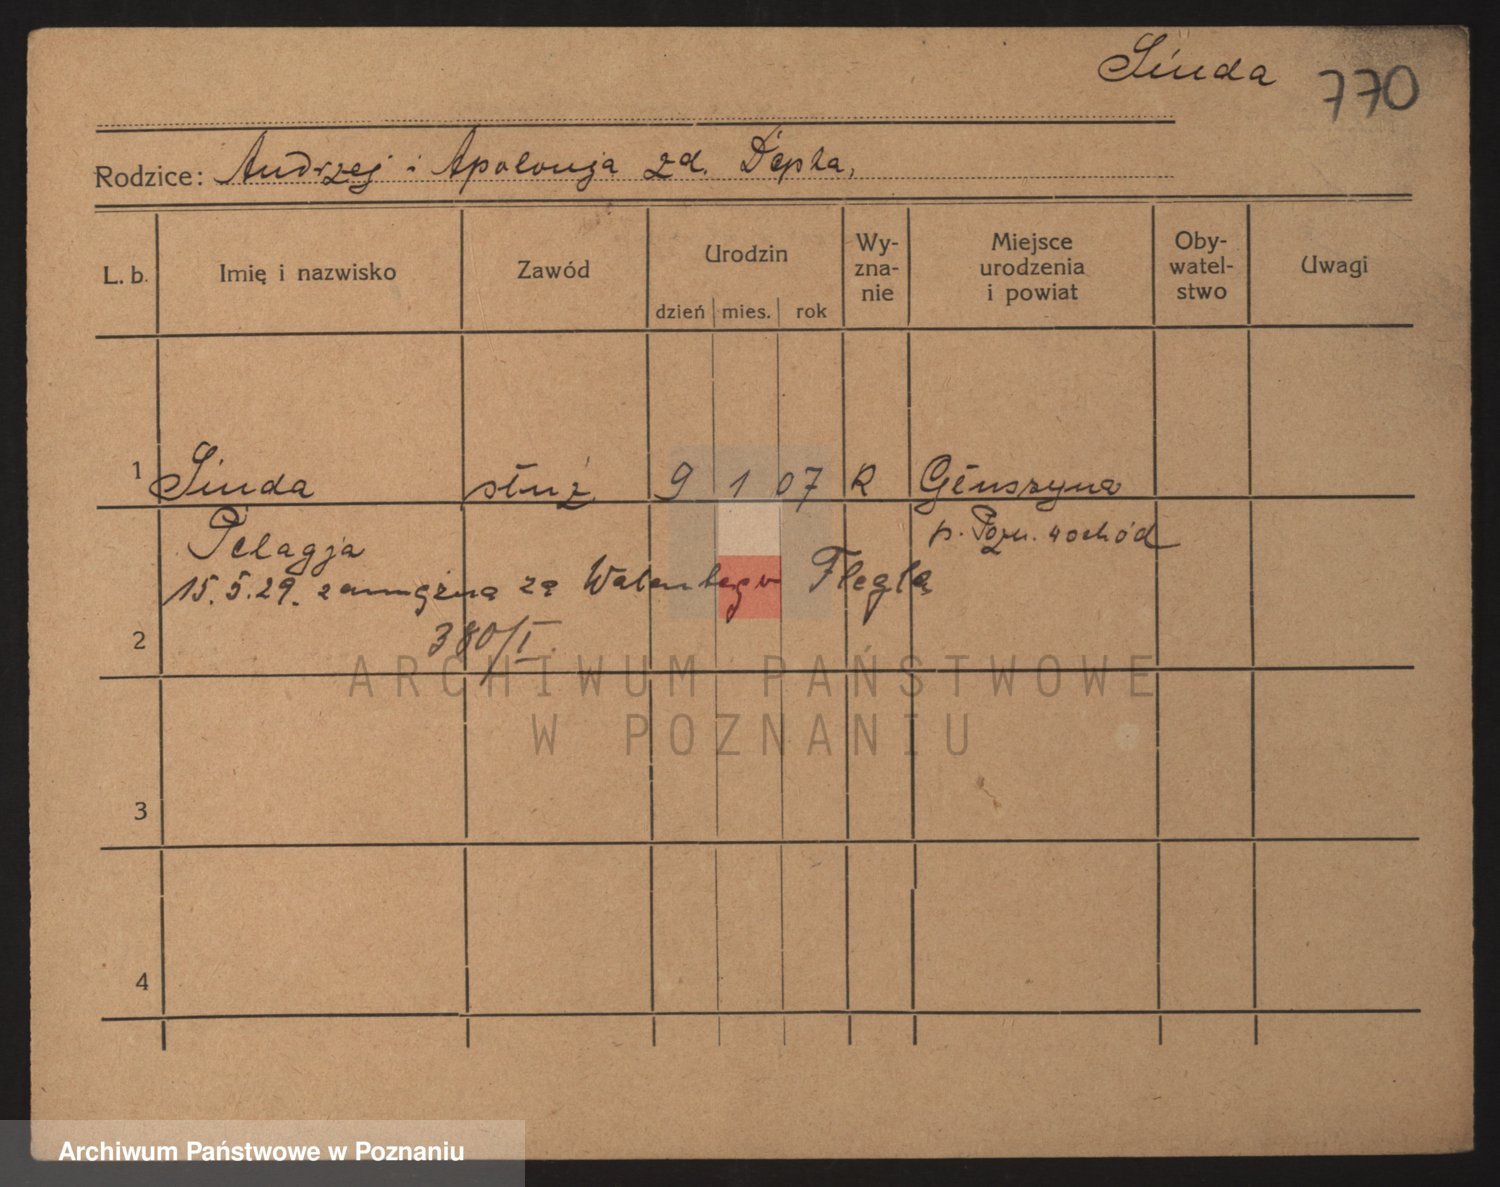 Sinda 770
Rodzice: Andrzej i Apolonja zd. Depta,
L. b. Imię i nazwisko Zawód Urodzin dzień mies. rok Wy-zna-nie Miejsce urodzenia i powiat Oby-watel-stwo Uwagi
1 Sinda służ. 9 1 07 R
Pelagja p. Pozn. wschód
15.5.29. zamężna za
2 380/I
ARCHIWUM PAŃSTWOWE
W POZNANIU
3
4
Archiwum Państwowe w Poznaniu